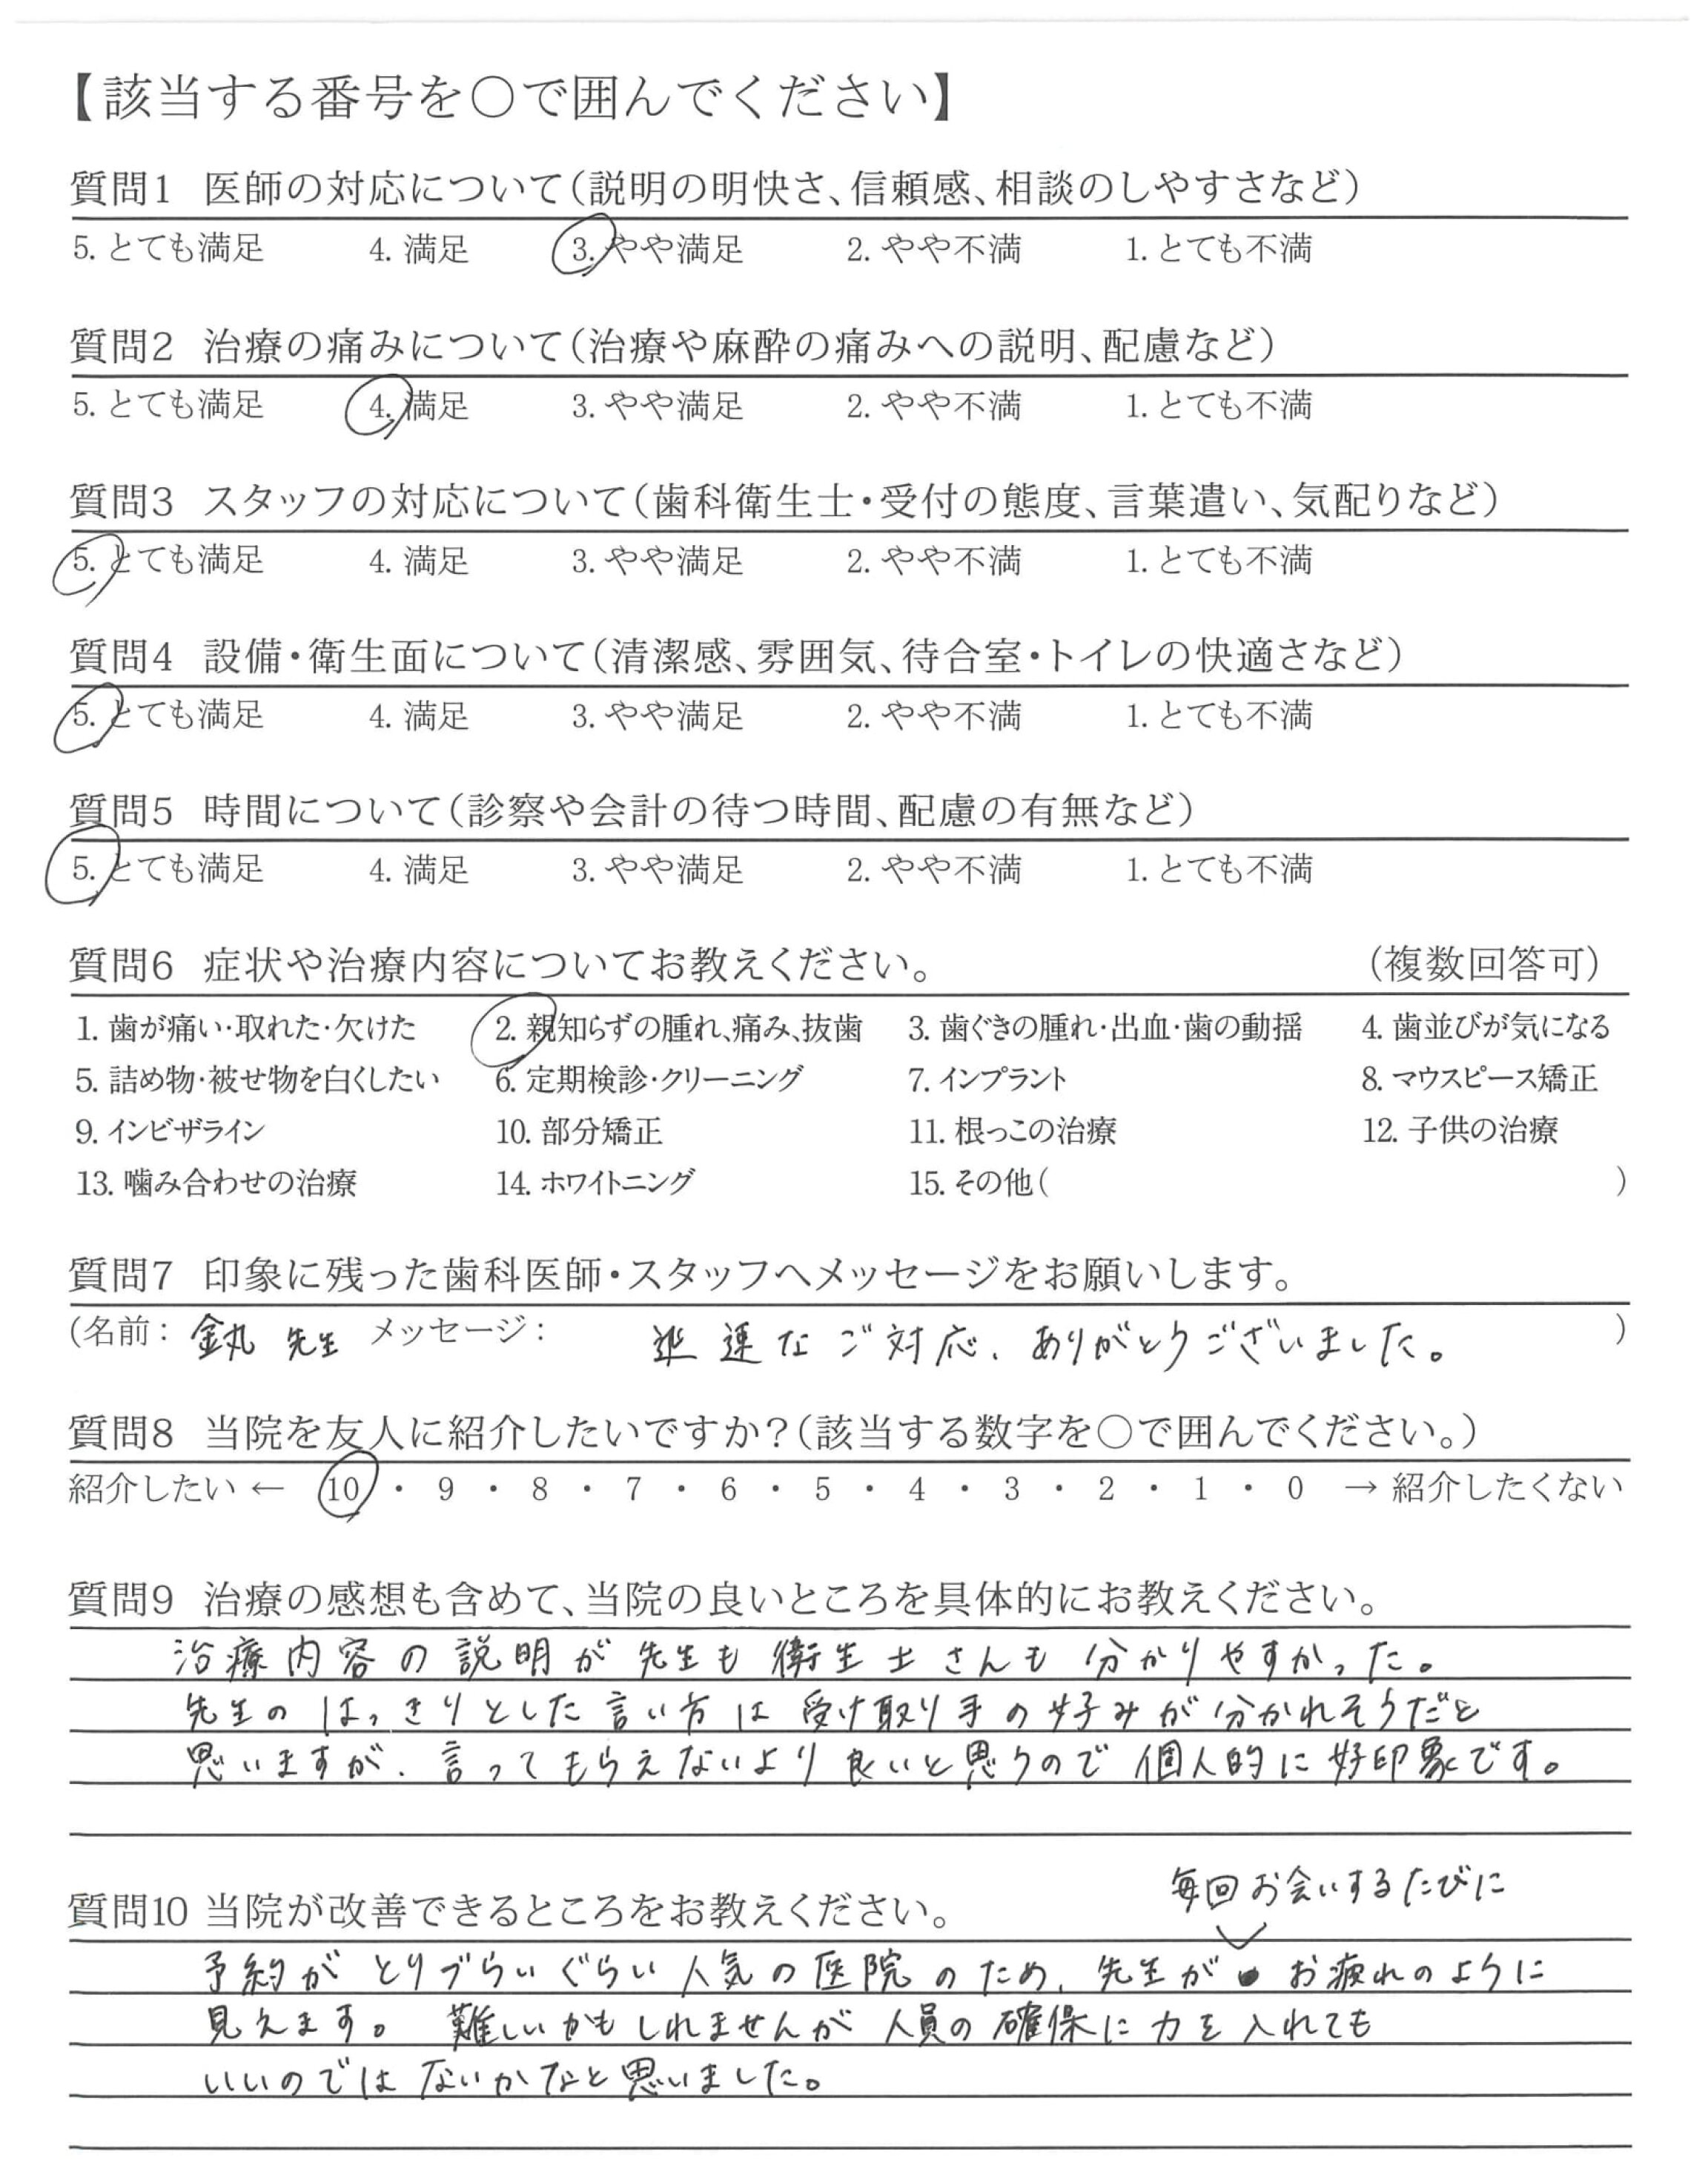 【該当する番号を○で囲んでください】
質問1 医師の対応について（説明の明快さ、信頼感、相談のしやすさなど）
5. とても満足 4. 満足 3. やや満足 2. やや不満 1. とても不満
質問2 治療の痛みについて（治療や麻酔の痛みへの説明、配慮など）
5. とても満足 4. 満足 3. やや満足 2. やや不満 1. とても不満
質問3 スタッフの対応について（歯科衛生士・受付の態度、言葉遣い、気配りなど）
5. とても満足 4. 満足 3. やや満足 2. やや不満 1. とても不満
質問4 設備・衛生面について（清潔感、雰囲気、待合室・トイレの快適さなど）
5. とても満足 4. 満足 3. やや満足 2. やや不満 1. とても不満
質問5 時間について（診察や会計の待つ時間、配慮の有無など）
5. とても満足 4. 満足 3. やや満足 2. やや不満 1. とても不満
質問6 症状や治療内容についてお教えください。 （複数回答可）
1. 歯が痛い・取れた・欠けた 2. 親知らずの腫れ、痛み、抜歯 3. 歯ぐきの腫れ・出血・歯の動揺 4. 歯並びが気になる
5. 詰め物・被せ物を白くしたい 6. 定期検診・クリーニング 7. インプラント 8. マウスピース矯正
9. インビザライン 10. 部分矯正 11. 根っこの治療 12. 子供の治療
13. 噛み合わせの治療 14. ホワイトニング 15. その他（ ）
質問7 印象に残った歯科医師・スタッフへメッセージをお願いします。
（名前： 金丸 先生 メッセージ： 迅速なご対応、ありがとうございました。 ）
質問8 当院を友人に紹介したいですか？（該当する数字を○で囲んでください。）
紹介したい ← 10 ・ 9 ・ 8 ・ 7 ・ 6 ・ 5 ・ 4 ・ 3 ・ 2 ・ 1 ・ 0 → 紹介したくない
質問9 治療の感想も含めて、当院の良いところを具体的にお教えください。
治療内容の説明が先生も衛生士さんも分かりやすかった。
先生のはっきりとした言い方は受け取り手の好みが分かれそうだと
思いますが、言ってもらえないより良いと思うので個人的に好印象です。
質問10 当院が改善できるところをお教えください。
毎回お会いするたびに
予約がとりづらいぐらい人気の医院のため、先生がお疲れのように
見えます。 難しいかもしれませんが人員の確保に力を入れても
いいのではないかなと思いました。